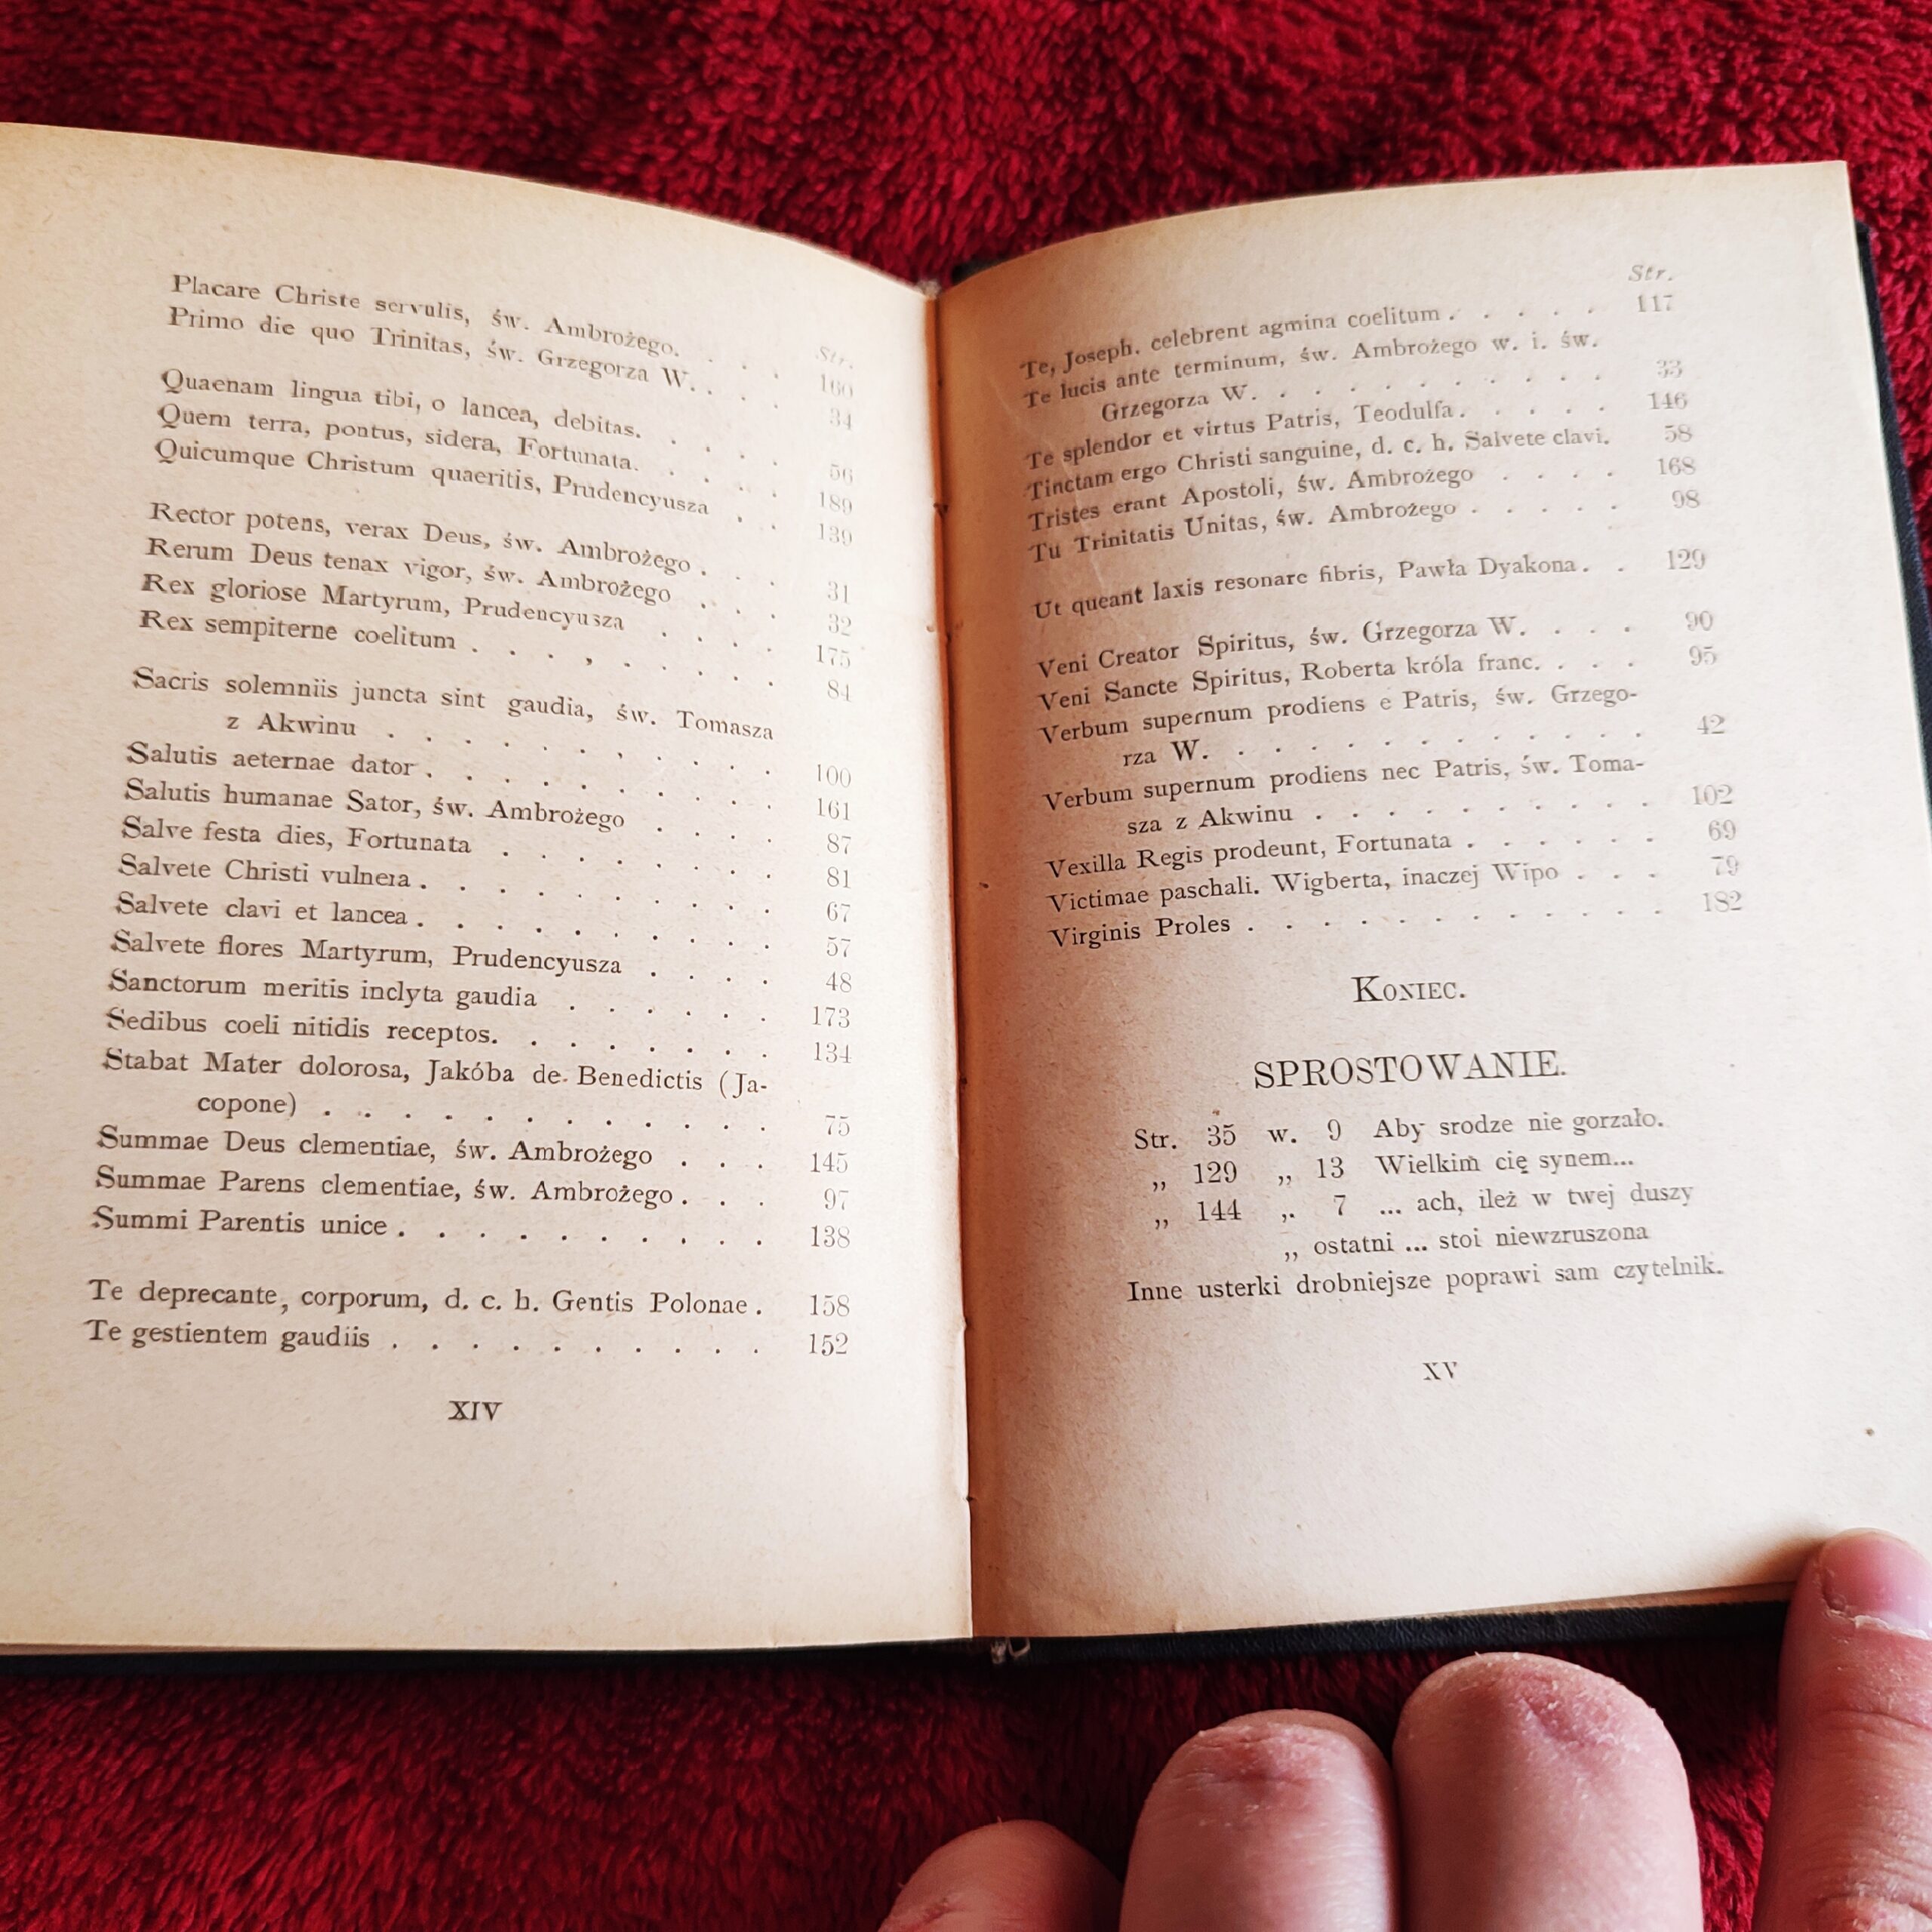 Str.
Placare Christe servulis, św. Ambrożego. . . . 160
Primo die quo Trinitas, św. Grzegorza W. . . . 34
Quaenam lingua tibi, o lancea, debitas. . . . . 56
Quem terra, pontus, sidera, Fortunata. . . . . 189
Quicumque Christum quaeritis, Prudencyusza . . 139
Rector potens, verax Deus, św. Ambrożego . . . 31
Rerum Deus tenax vigor, św. Ambrożego . . . 32
Rex gloriose Martyrum, Prudencyusza . . . . 175
Rex sempiterne coelitum . . . , . . . . . 84
Sacris solemniis juncta sint gaudia, św. Tomasza
z Akwinu . . . . . . . . . . . 100
Salutis aeternae dator . . . . . . . . . . 161
Salutis humanae Sator, św. Ambrożego . . . . 87
Salve festa dies, Fortunata . . . . . . . . 81
Salvete Christi vulnera . . . . . . . . . . 67
Salvete clavi et lancea . . . . . . . . . . 57
Salvete flores Martyrum, Prudencyusza . . . . 48
Sanctorum meritis inclyta gaudia . . . . . . 173
Sedibus coeli nitidis receptos. . . . . . . . 134
Stabat Mater dolorosa, Jakóba de Benedictis (Ja-
copone) . . . . . . . . . . . . 75
Summae Deus clementiae, św. Ambrożego . . . 145
Summae Parens clementiae, św. Ambrożego . . . 97
Summi Parentis unice . . . . . . . . . . 138
Te deprecante, corporum, d. c. h. Gentis Polonae . 158
Te gestientem gaudiis . . . . . . . . . . 152
XIV
Str.
Te, Joseph. celebrent agmina coelitum . . . . . 117
Te lucis ante terminum, św. Ambrożego w. i. św.
Grzegorza W. . . . . . . . . . . 33
Te splendor et virtus Patris, Teodulfa . . . . . 146
Tinctam ergo Christi sanguine, d. c. h. Salvete clavi. 58
Tristes erant Apostoli, św. Ambrożego . . . . 168
Tu Trinitatis Unitas, św. Ambrożego . . . . . 98
Ut queant laxis resonare fibris, Pawła Dyakona . . 129
Veni Creator Spiritus, św. Grzegorza W. . . . 90
Veni Sancte Spiritus, Roberta króla franc. . . . 95
Verbum supernum prodiens e Patris, św. Grzego-
rza W. . . . . . . . . . . . . 42
Verbum supernum prodiens nec Patris, św. Toma-
sza z Akwinu . . . . . . . . . 102
Vexilla Regis prodeunt, Fortunata . . . . . . 69
Victimae paschali. Wigberta, inaczej Wipo . . . 79
Virginis Proles . . . . . . . . . . . . 182
KONIEC.
SPROSTOWANIE.
Str. 35 w. 9 Aby srodze nie gorzało.
„ 129 „ 13 Wielkim cię synem...
„ 144 „ 7 ... ach, ileż w twej duszy
„ ostatni ... stoi niewzruszona
Inne usterki drobniejsze poprawi sam czytelnik.
XV